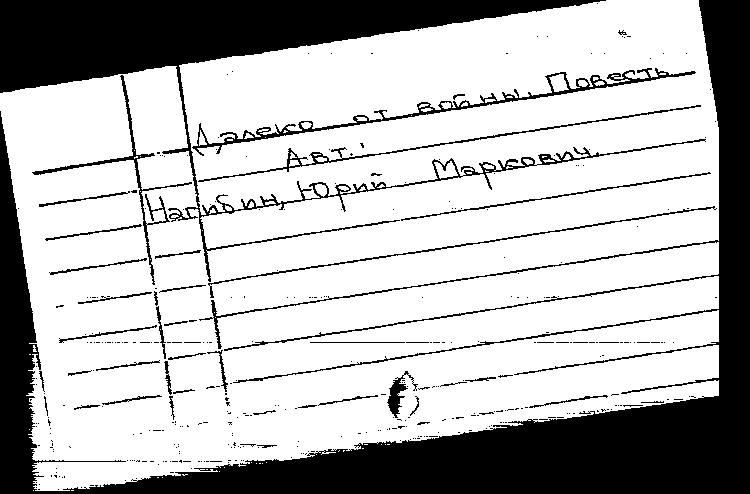 Далеко от войны. Повесть
Авт.:
Нагибин, Юрий Маркович.